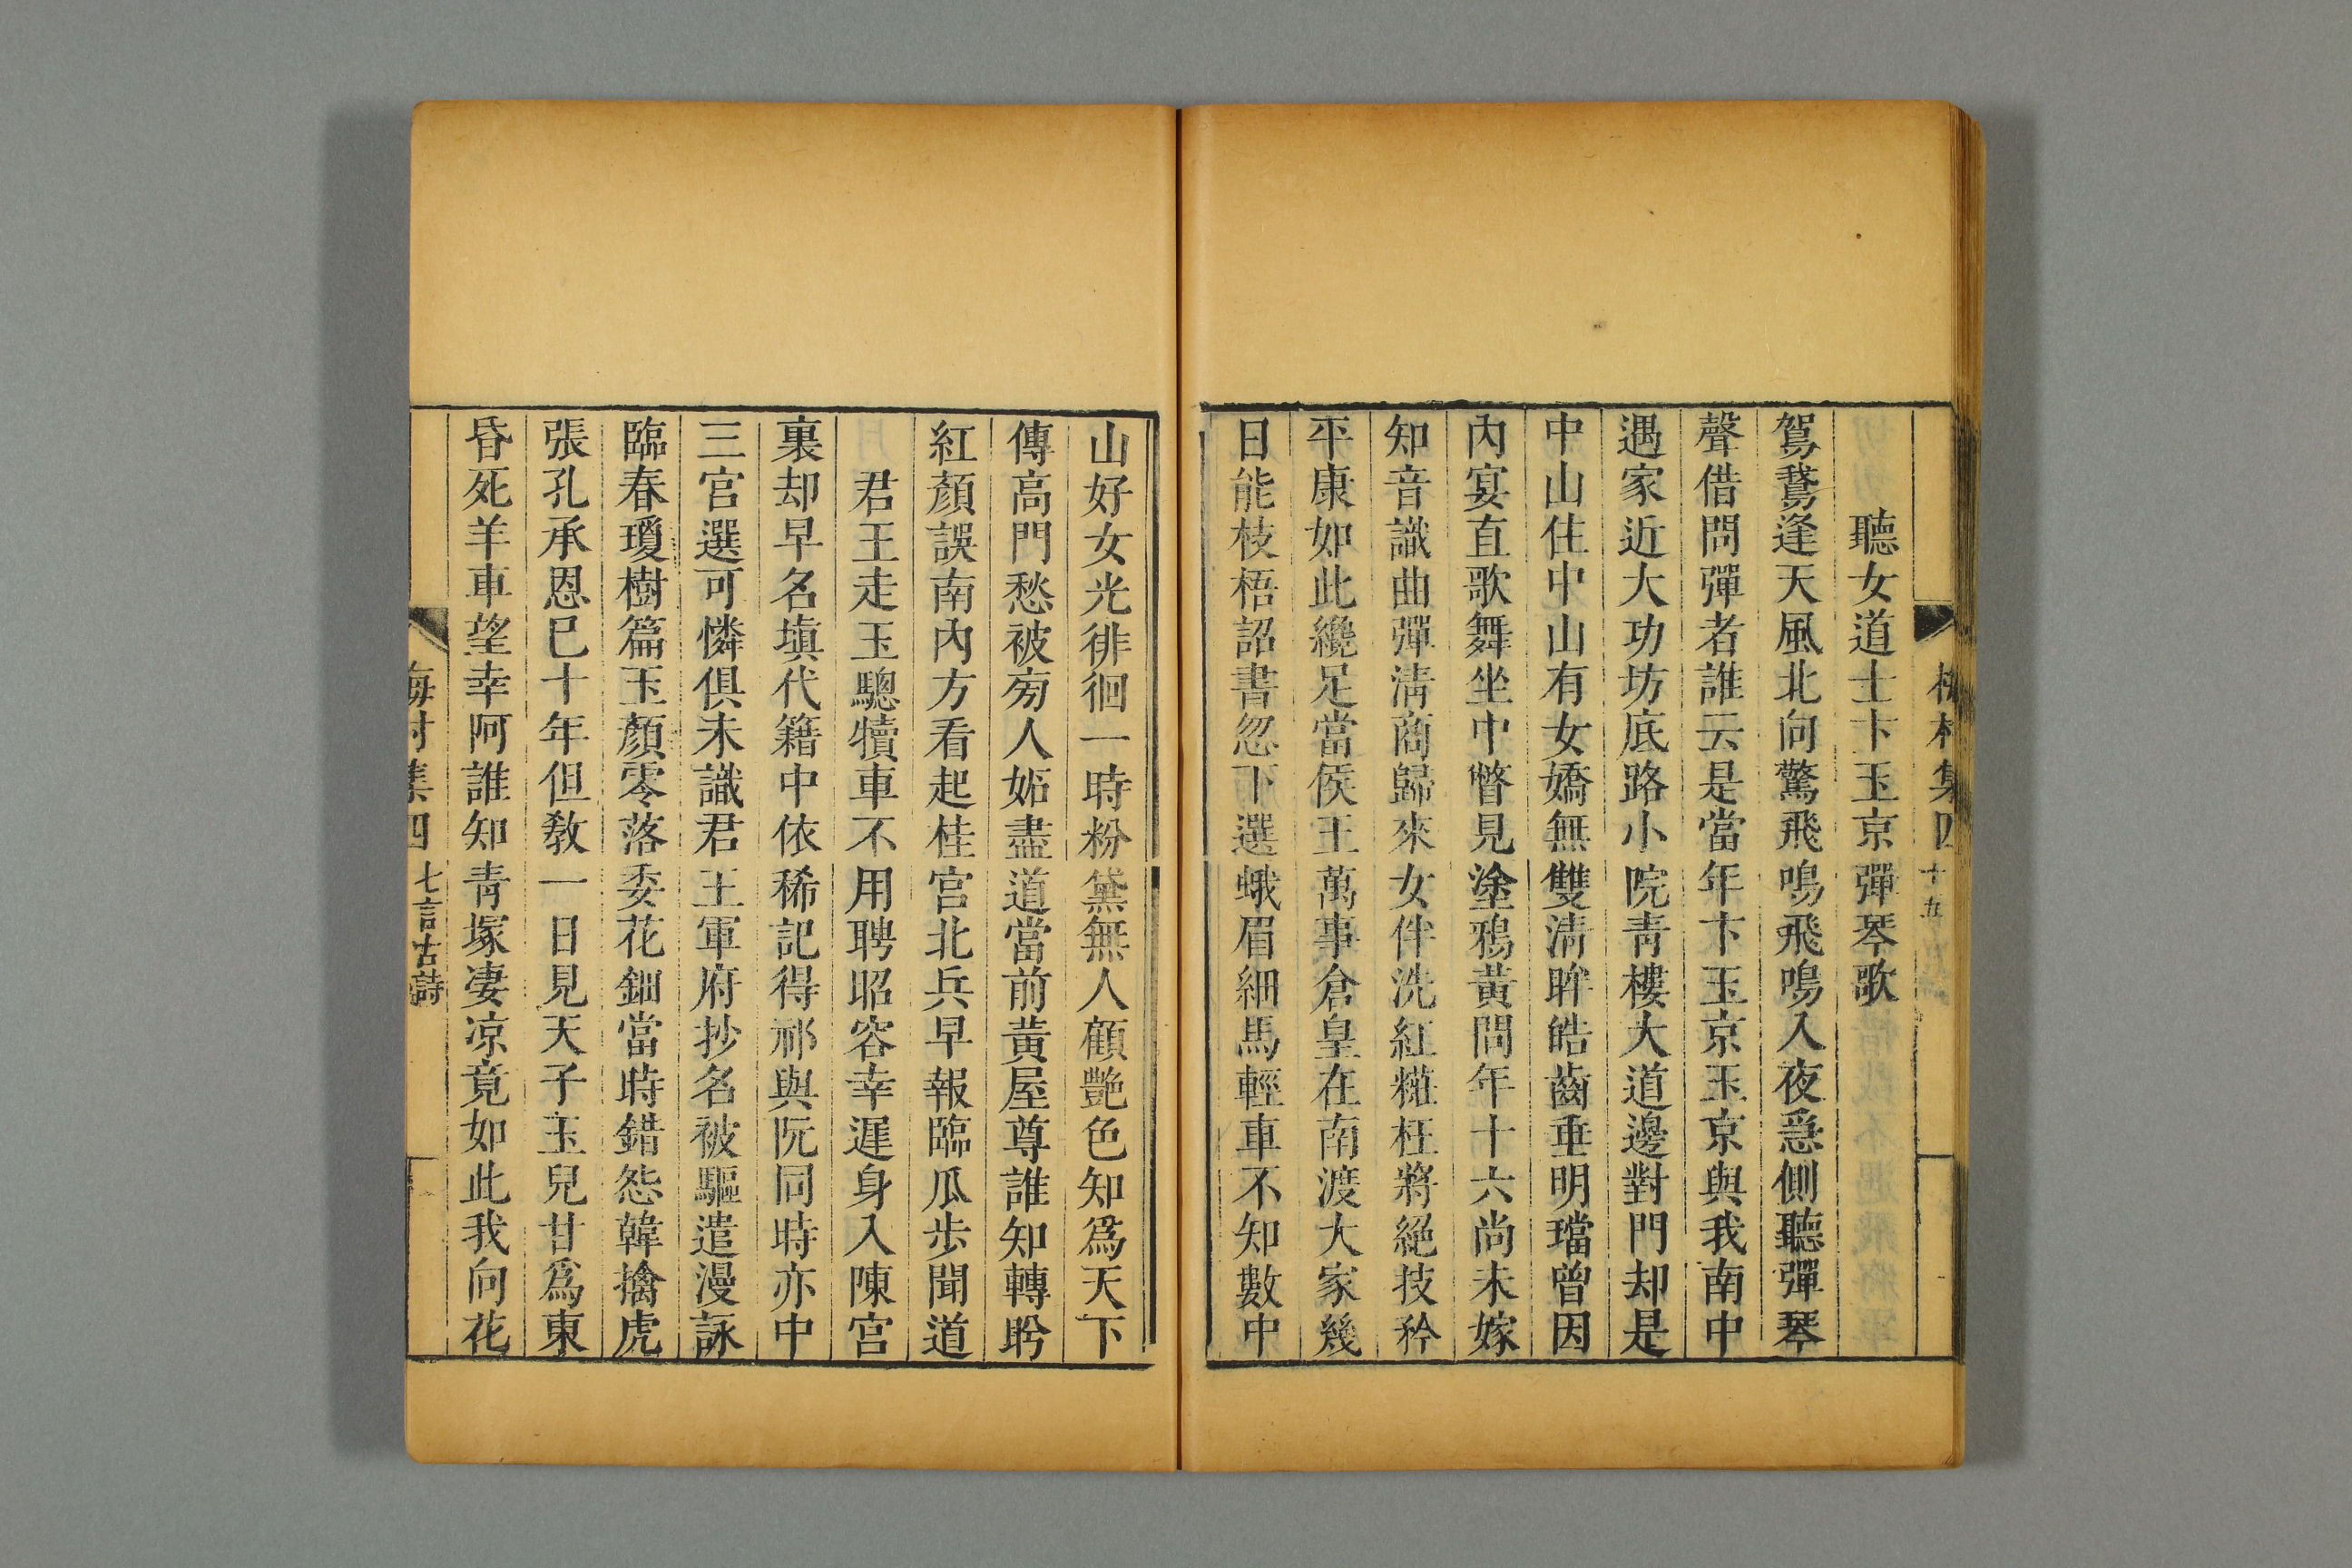 梅村集四 十五
聽女道士卞玉京彈琴歌
鴐鵞逢天風北向驚飛鳴飛鳴入夜急側聽彈琴
聲借問彈者誰云是當年卞玉京玉京與我南中
遇家近大功坊底路小院青樓大道邊對門却是
中山住中山有女嬌無雙清眸皓齒垂明璫曾因
內宴直歌舞坐中瞥見塗鴉黃問年十六尚未嫁
知音識曲彈清商歸來女伴洗紅糚枉將絕技矜
平康如此纔足當侯王萬事倉皇在南渡大家幾
日能枝梧詔書忽下選蛾眉細馬輕車不知數中
山好女光徘徊一時粉黛無人顧艷色知爲天下
傳高門愁被旁人妬盡道當前黃屋尊誰知轉盻
紅顏誤南內方看起桂宮北兵早報臨瓜步聞道
君王走玉驄犢車不用聘昭容幸遲身入陳宮
裏却早名塡代籍中依稀記得祁與阮同時亦中
三宮選可憐俱未識君王軍府抄名被驅遣漫詠
臨春瓊樹篇玉顏零落委花鈿當時錯怨韓擒虎
張孔承恩已十年但敎一日見天子玉兒甘爲東
昏死羊車望幸阿誰知青塚凄凉竟如此我向花
梅村集四 七言古詩